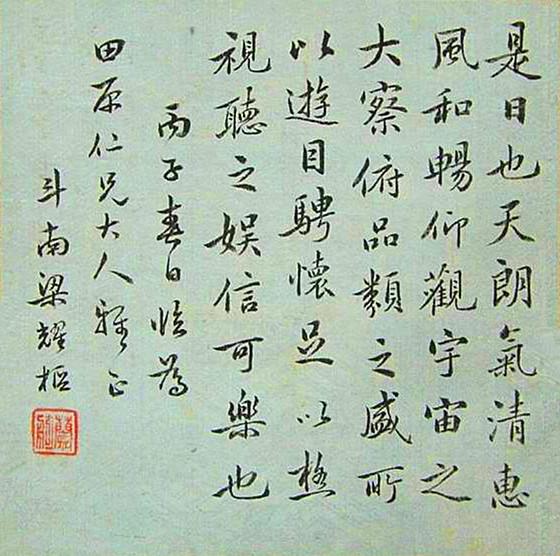 是日也天朗氣清惠
風和暢仰觀宇宙之
大察俯品類之盛所
以遊目騁懷足以極
視聽之娛信可樂也
丙子春日臨為
田原仁兄大人雅正
斗南梁耀樞